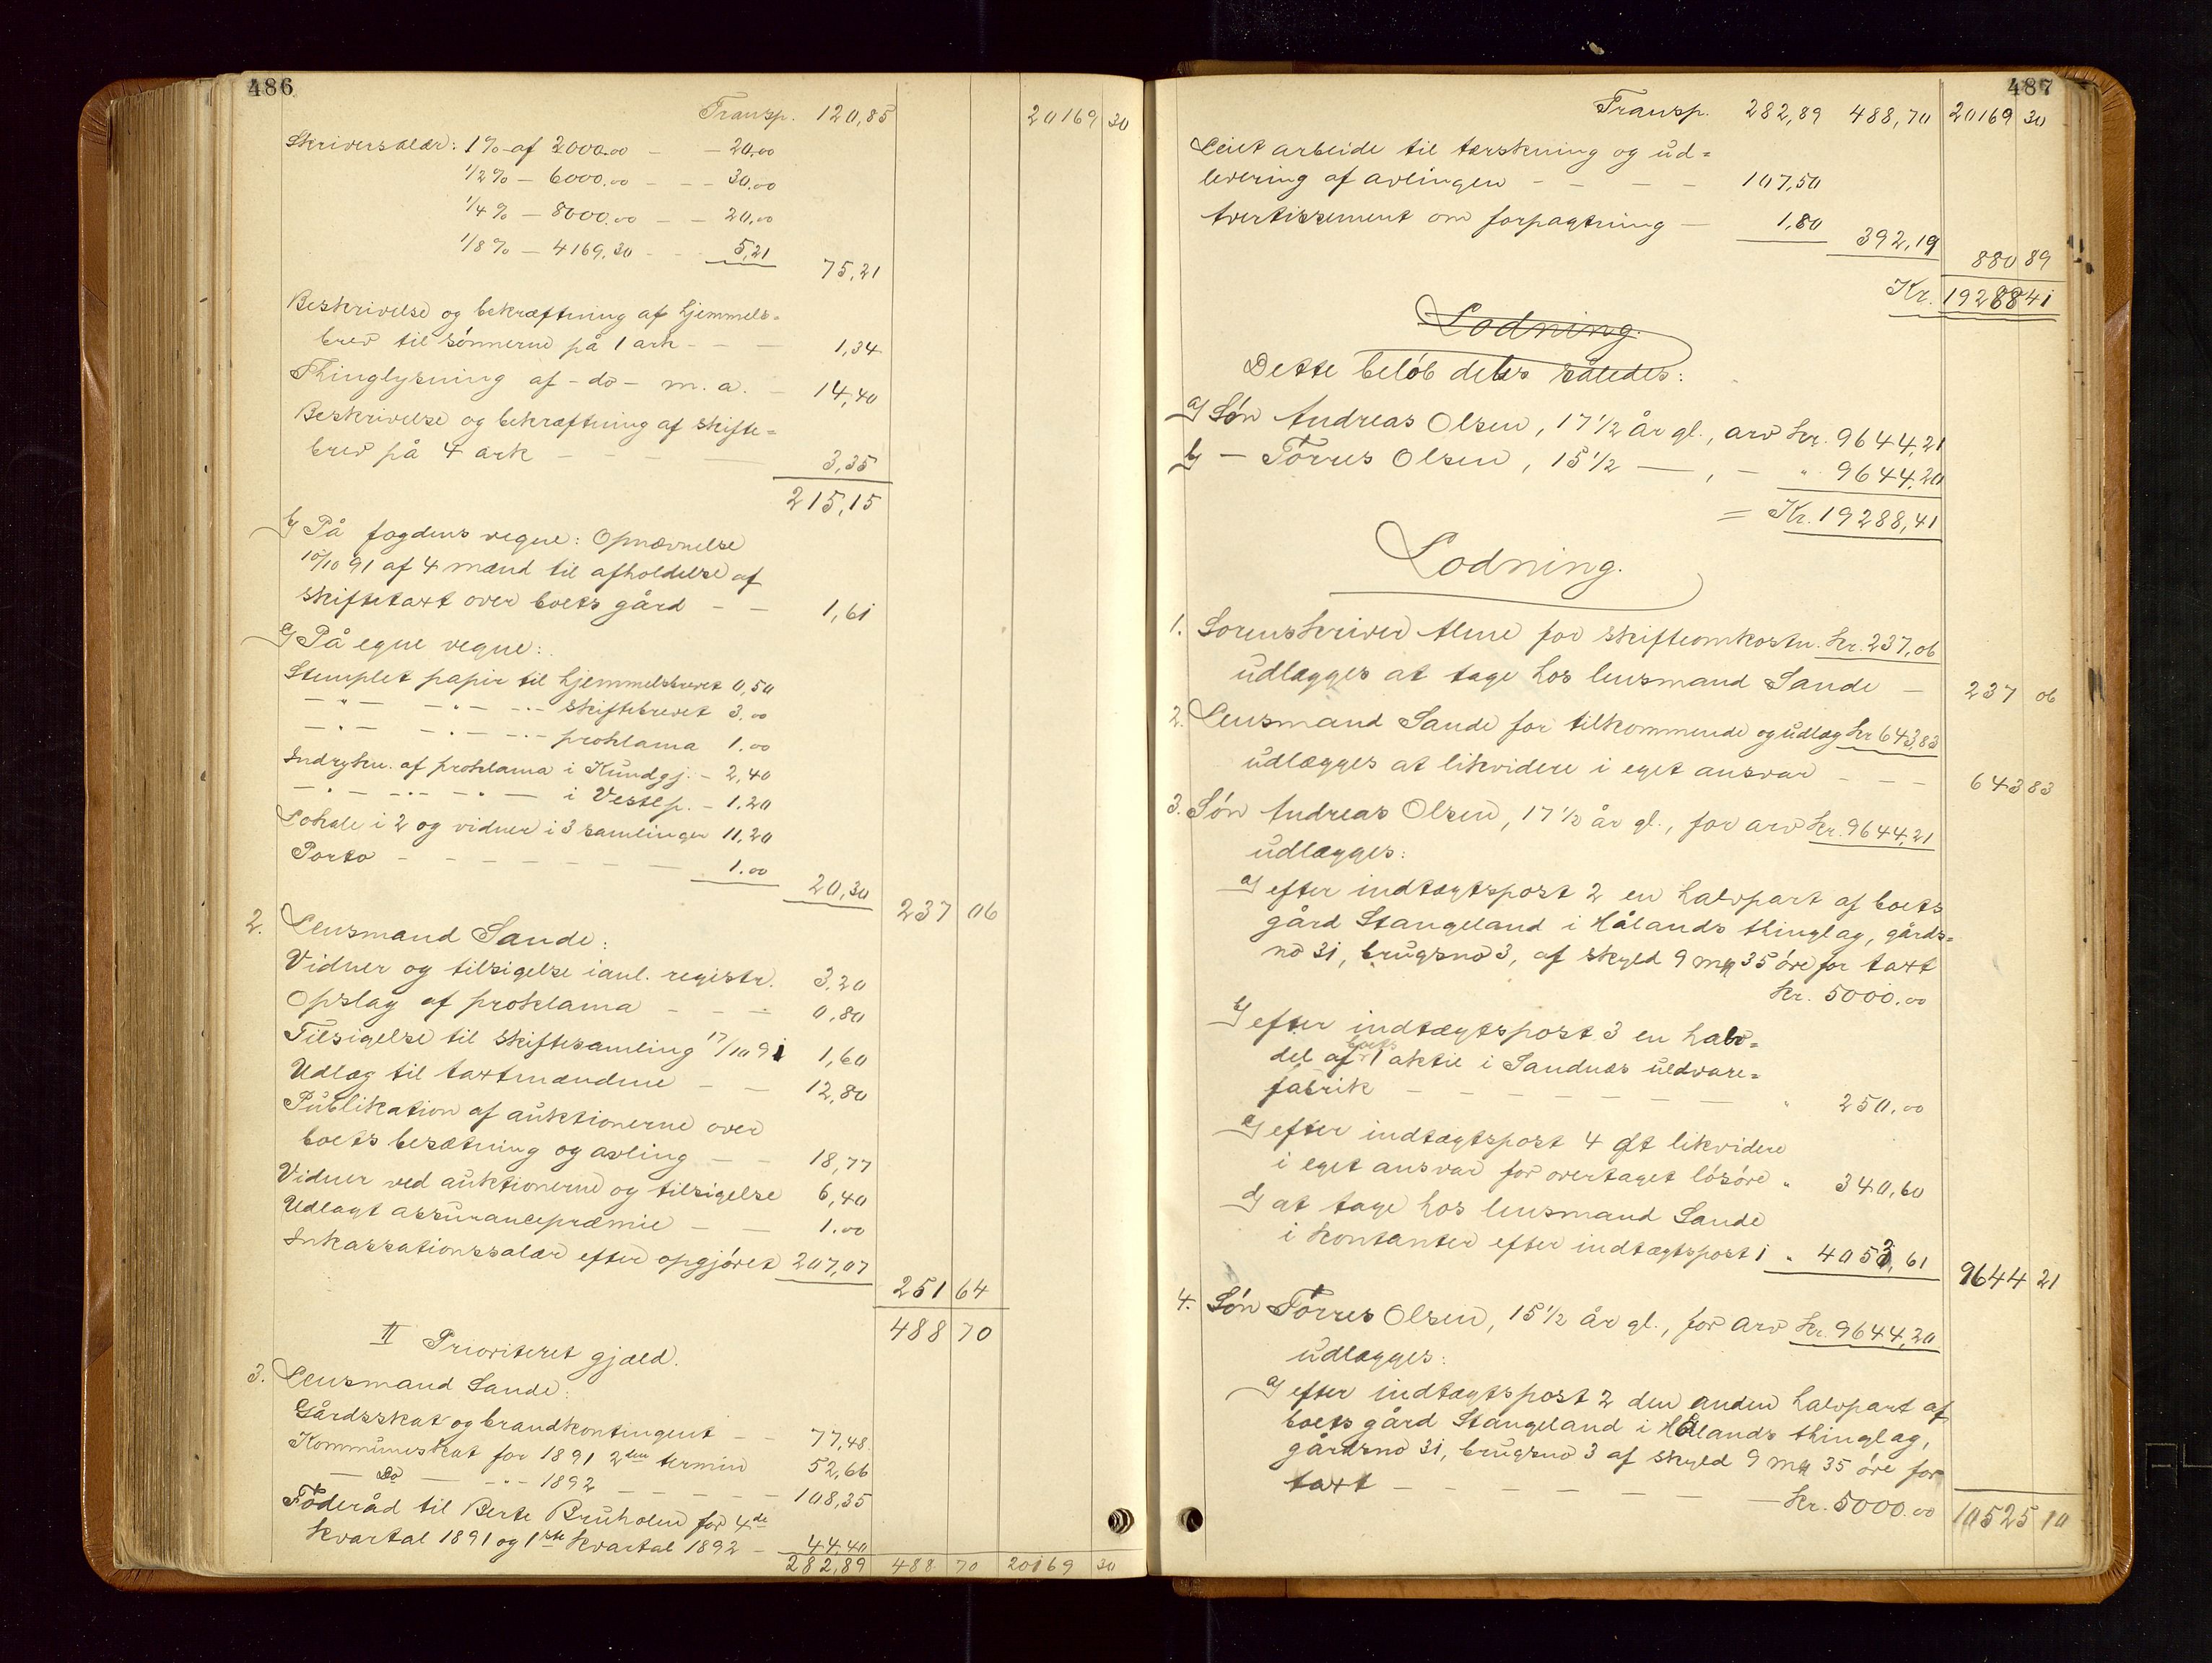 486
Transp. 120,85 20169 30
Skriversalær: 1% af 2000.00 — — 20.00
1/2% — 6000.00 — — — 30.00
1/4% — 8000.00 — — 20.00
1/8% — 4169,30 — — 5,21 75,21
Beskrivelse og bekræftning af hjemmels-
brev til sønnerne på 1 ark — — — 1,34
Thinglysning af – do – m. a. — 14,40
Beskrivelse og bekræftning af skifte-
brev på 4 ark — — — — 3,35
215,15
b) På fogdens vegne: Opnævnelse
10/10 91 af 4 mænd til afholdelse af
skiftetaxt over boets gård — — 1,61
c) På egne vegne:
Stemplet papir til hjemmelsbrevet 0,50
— " — — " — — " — skiftebrevet 3.00
— " — — " — — " — proklama 1.00
Indrykn. af proklama i Kundgj. — 2,40
— " — — " — — " — i Vestlp. — 1.20
Lokale i 2 og vidner i 3 samlinger 11,20
Porto — — — — — — — 1.00 20,30 237 06
2. Lensmand Sande:
Vidner og tilsigelse ianl. registr. 3.20
Opslag af proklama — — — 0,80
Tilsigelse til skiftesamling 17/10 91 1,60
Udlæg til taxtmændene — — 12,80
Publikation af auktionerne over
boets besætning og avling — — 18,77
Vidner ved auktionerne og tilsigelse 6,40
Udlagt assurancepræmie — — 1.00
Inkassationssalær efter opgjøret 207,07 251 64
488 70
II Prioriteret gjæld.
3. Lensmand Sande:
Gårdsskat og brandkontingent — — 77,48
Kommuneskat for 1891 2den termin 52,66
— Do — — " — 1892 — — — — 108,35
Føderåd til Berte Bruholen for 4de
kvartal 1891 og 1ste kvartal 1892 — 44,40
282,89 488 70 20169 30
487
Transp. 282,89 488,70 20169 30
Leiet arbeide til tærskning og ud-
levering af avlingen — — — — 107,50
Avertissement om forpagtning — 1,80 392,19 880 89
Kr. 19288 41
Lodning.
Dette beløb deles således:
a) Søn Andreas Olsen, 17 1/2 år gl., arv kr. 9644,21
b) — Tørres Olsen, 15 1/2 — , — " 9644,20
= Kr. 19288,41
Lodning.
1. Sorenskriver Alme for skifteomkostn. kr. 237,06
udlægges at tage hos lensmand Sande — 237 06
2. Lensmand Sande for tilkommende og udlæg kr 643,83
udlægges at likvidere i eget ansvar — — — 643 83
3. Søn Andreas Olsen, 17 1/2 år gl., for arv kr. 9644,21
udlægges:
a) efter indtægtspost 2 en halvpart af boets
gård Stangeland i Hålands thinglag, gårds-
no 31, brugsno 3, af skyld 9 mk 35 øre for taxt
kr. 5000.00
b) efter indtægtspost 3 en halv-
del af boets 1 aktie i Sandnæs uldvare-
fabrik — — — — — — — " 250.00
c) efter indtægtspost 4 at likvidere
i eget ansvar for overtaget løsøre " 340,60
d) at tage hos lensmand Sande
i kontanter efter indtægtspost 1 " 4053,61 9644 21
4. Søn Tørres Olsen, 15 1/2 år gl., for arv kr. 9644,20
udlægges:
a) efter indtægtspost 2 den anden halvpart af
boets gård Stangeland i Hålands thinglag,
gårdsno 31, brugsno 3 af skyld 9 mk 35 øre for
taxt — — — — — — — kr. 5000.00 10525 10